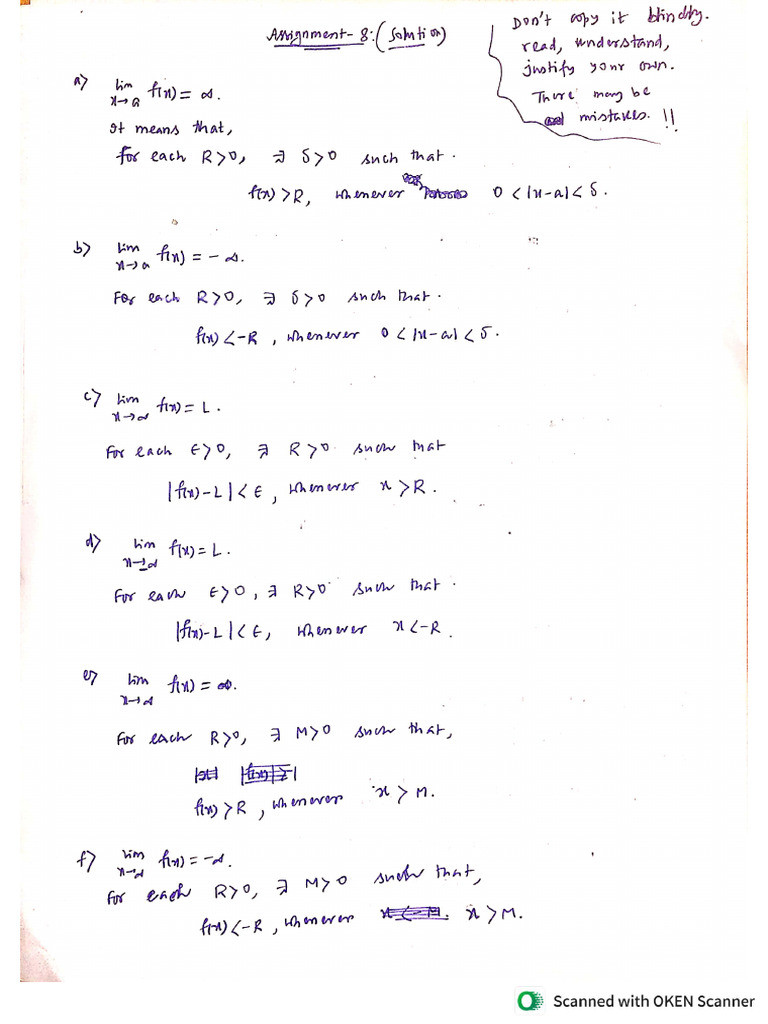 Assignment-8: (Solution)
Don't copy it blindly.
read, understand,
justify your own.
There may be
mistakes. !!
a) lim x→a f(x) = ∞.
It means that,
for each R>0, ∃ δ>0 such that.
f(x) >R, whenever 0 < |x-a| < δ.
b) lim x→a f(x) = -∞.
For each R>0, ∃ δ>0 such that.
f(x) <-R, whenever 0 < |x-a| < δ.
c) lim x→∞ f(x) = L.
For each ϵ>0, ∃ R>0 such that
|f(x)-L| < ϵ, whenever x >R.
d) lim x→-∞ f(x) = L.
For each ϵ>0, ∃ R>0 such that.
|f(x)-L| < ϵ, whenever x <-R.
e) lim x→∞ f(x) = ∞.
For each R>0, ∃ M>0 such that,
f(x) >R, whenever x > M.
f) lim x→∞ f(x) = -∞.
For each R>0, ∃ M>0 such that,
f(x) <-R, whenever x > M.
Scanned with OKEN Scanner